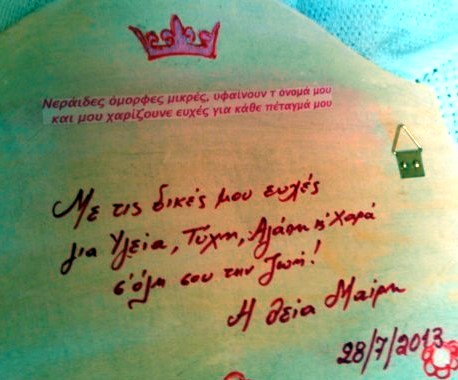 Νεράιδες όμορφες μικρές, υφαίνουν τ όνομά μου
και μου χαρίζουνε ευχές για κάθε πέταγμά μου
Με τις δικές μου ευχές
για Υγεία, Τύχη, Αγάπη κ' Χαρά
σ' όλη σου την ζωή!
Η θεία Μαίρη
28/7/2013